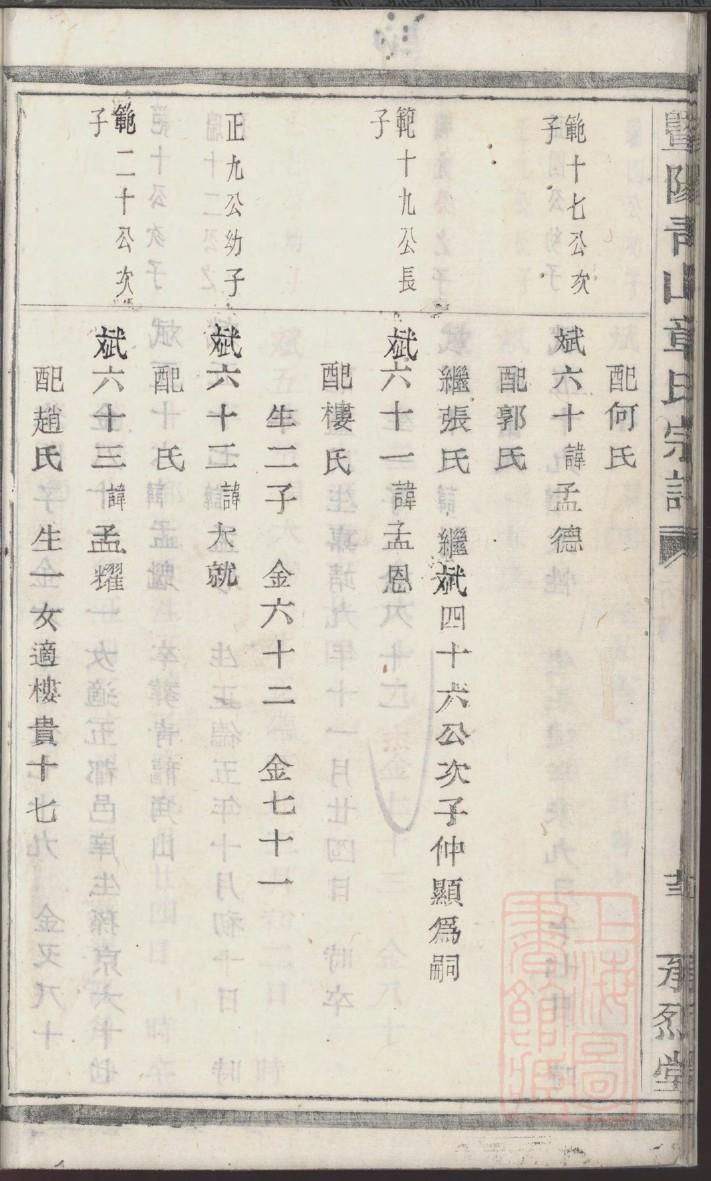 暨陽青山章氏宗譜
承烈堂
配何氏
範十七公次子
斌六十諱孟德
配郭氏
繼張氏 繼斌四十六公次子仲顯爲嗣
範十九公長子
斌六十一諱孟恩
配樓氏
生二子 金六十二 金七十一
正九公幼子
斌六十二諱大就
配 氏
範二十公次子
斌六十三諱孟耀
配趙氏 生一女適樓貴十七
上海圖書館藏